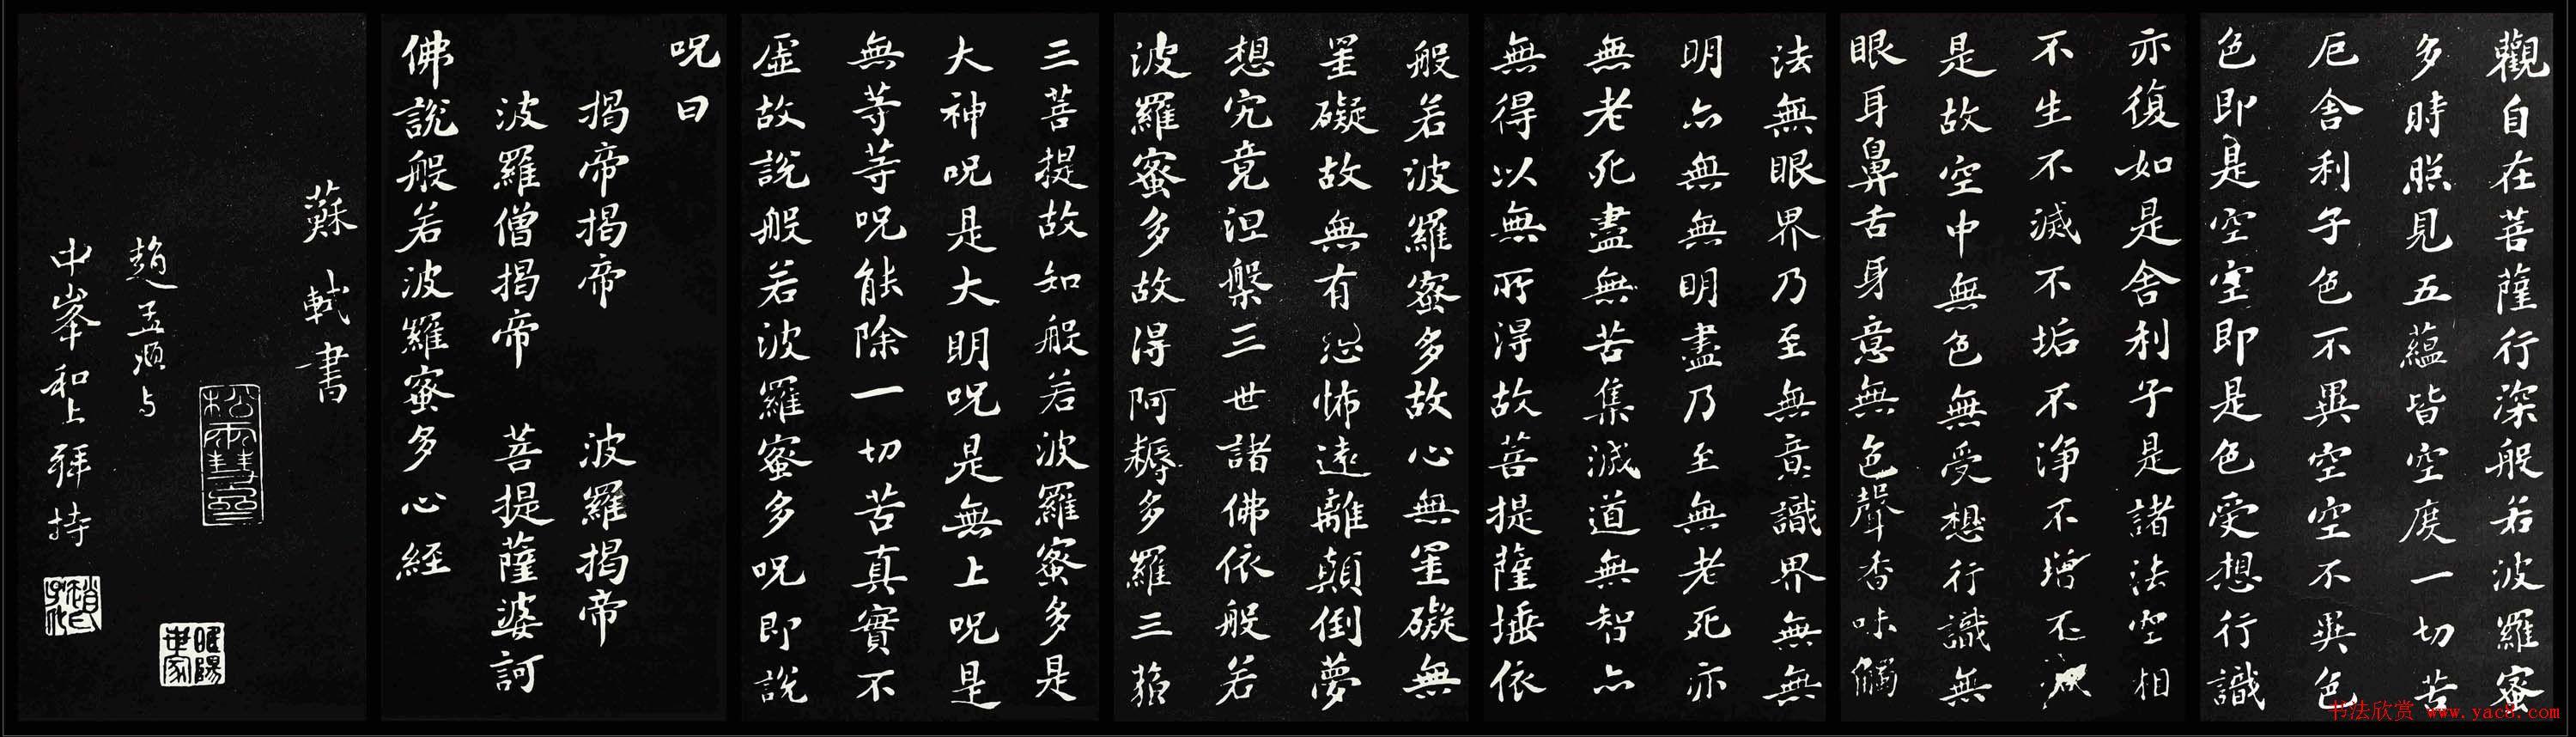 觀自在菩薩行深般若波羅蜜
多時照見五蘊皆空度一切苦
厄舍利子色不異空空不異色
色即是空空即是色受想行識
亦復如是舍利子是諸法空相
不生不滅不垢不淨不增不減
是故空中無色無受想行識無
眼耳鼻舌身意無色聲香味觸
法無眼界乃至無意識界無無
明亦無無明盡乃至無老死亦
無老死盡無苦集滅道無智亦
無得以無所得故菩提薩埵依
般若波羅蜜多故心無罣礙無
罣礙故無有恐怖遠離顛倒夢
想究竟涅槃三世諸佛依般若
波羅蜜多故得阿耨多羅三藐
三菩提故知般若波羅蜜多是
大神呪是大明呪是無上呪是
無等等呪能除一切苦真實不
虛故說般若波羅蜜多呪即說
呪曰
揭帝揭帝 波羅揭帝
波羅僧揭帝 菩提薩婆訶
佛說般若波羅蜜多心經
蘇軾書
趙孟頫与
中峯和上拜持
趙氏子昂
睢陽世家
书法欣赏 www.yac8.com